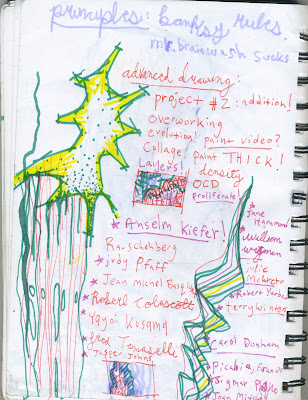 principles: banksy rules.
mr. brainwash sucks
advanced drawing:
project #2: addition!
overworking
evolution! paint video?
Collage paint THICK!
Layers! density
OCD
proliferate
* Anselm Kiefer!
Rauschenberg
* Judy Pfaff
* Jean Michel
* Robert Colescott
* Yayoi Kusama
* Fred Tomaselle
* Jasper Johns
* Jane Hammond
* William
* Julie Mehretu
* Robert
* terry Winters
Carol Dunham
Picabia,
Sigmar
Joan Mitchell